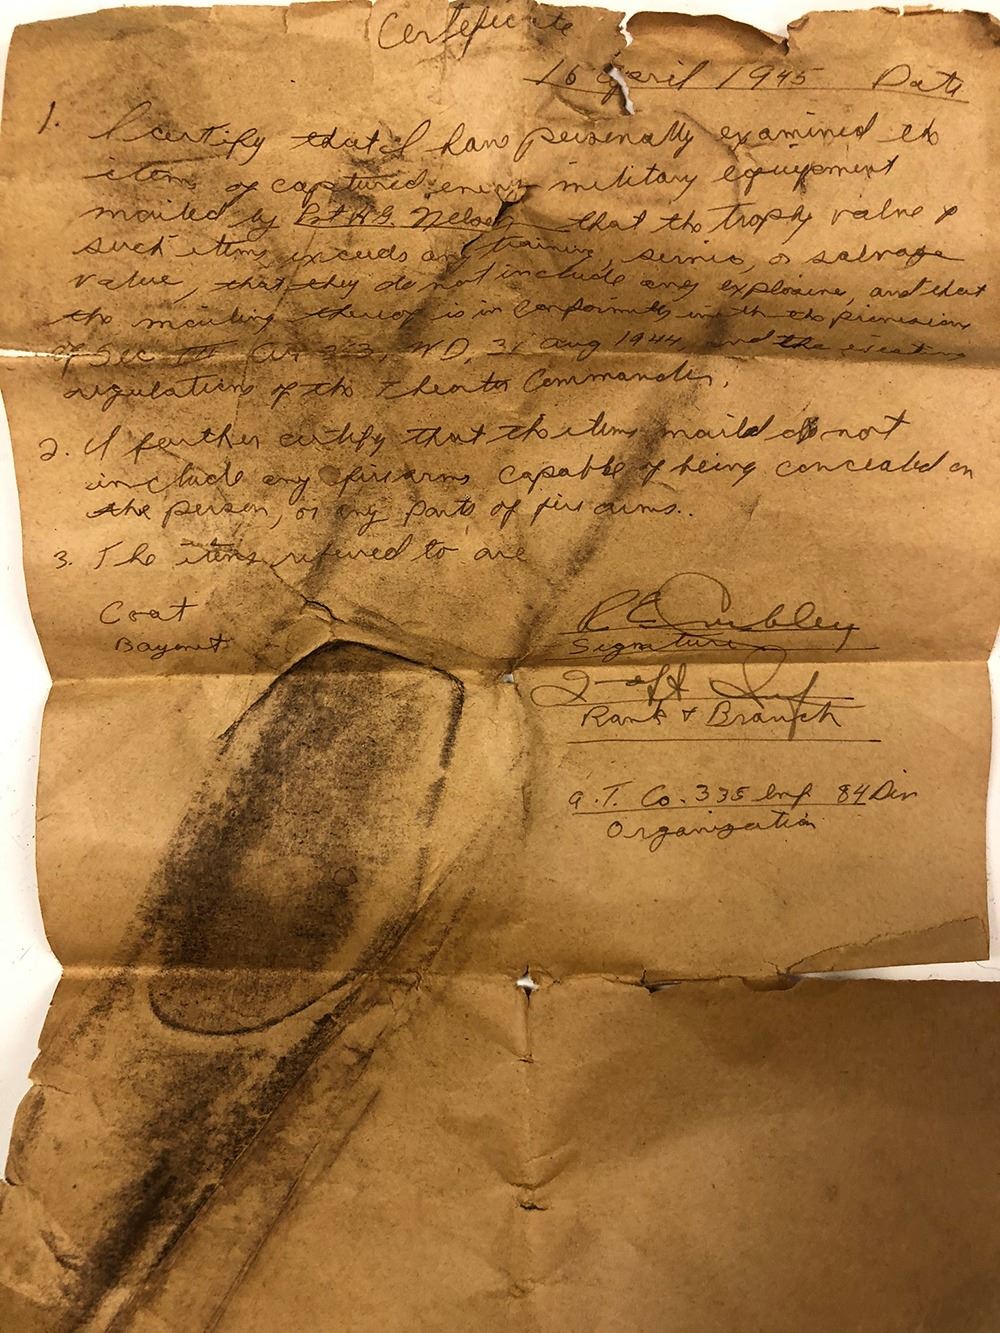 Certificate
16 April 1945 Date
1. I certify that I have personally examined the
items of captured enemy military equipment
mailed by Pvt H.G. Nelson that the trophy value of
such items exceeds any training, service, or salvage
value, that they do not include any explosive, and that
the mailing thereof is in conformity with the provisions
of Sec III Cir 353, WD, 31 Aug 1944 and the existing
regulations of the theater Commander,
2. I further certify that the items mailed do not
include any firearms capable of being concealed on
the person, or any parts of firearms..
3. The items referred to are
Coat
Bayonet
Signature
Rank & Branch
A.T. Co. 335 Inf 84 Div
Organization